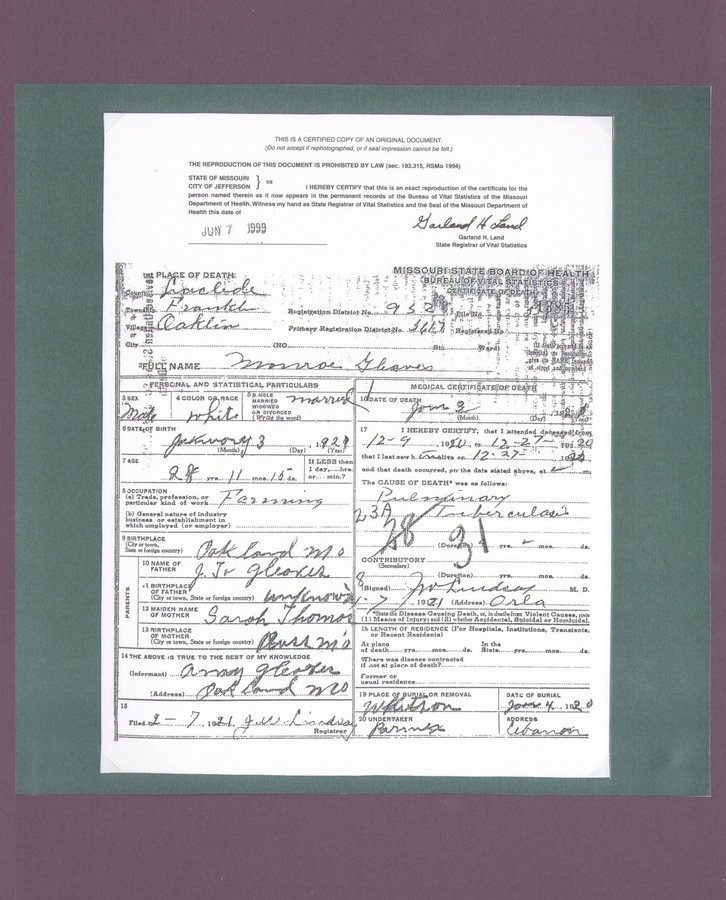 THIS IS A CERTIFIED COPY OF AN ORIGINAL DOCUMENT.
(Do not accept if rephotographed, or if seal impression cannot be felt.)
THE REPRODUCTION OF THIS DOCUMENT IS PROHIBITED BY LAW (sec. 193.315, RSMo 1994)
STATE OF MISSOURI
CITY OF JEFFERSON } ss
I HEREBY CERTIFY that this is an exact reproduction of the certificate for the
person named therein as it now appears in the permanent records of the Bureau of Vital Statistics of the Missouri
Department of Health. Witness my hand as State Registrar of Vital Statistics and the Seal of the Missouri Department of
Health this date of
JUN 7 1999
Garland H. Land
Garland H. Land
State Registrar of Vital Statistics
1 PLACE OF DEATH
County Laclede
Township Franklin
or
Village Oaklin
or
City (NO. St. Ward)
MISSOURI STATE BOARD OF HEALTH
BUREAU OF VITAL STATISTICS
CERTIFICATE OF DEATH
Registration District No. 952 File No.
Primary Registration District No. Registered No.
2 FULL NAME Monroe Gleaves
PERSONAL AND STATISTICAL PARTICULARS
3 SEX
Male
4 COLOR OR RACE
White
5 SINGLE
MARRIED
WIDOWED
OR DIVORCED
(Write the word)
married
6 DATE OF BIRTH
3
(Month) (Day) (Year)
7 AGE
28 yrs. 11 mos. 15 ds.
If LESS than
1 day,....hrs.
or.....min.?
8 OCCUPATION
(a) Trade, profession, or
particular kind of work Farming
(b) General nature of industry
business or establishment in
which employed (or employer)
9 BIRTHPLACE
(City or town,
State or foreign country) Oakland Mo
PARENTS
10 NAME OF
FATHER
Gleaves
11 BIRTHPLACE
OF FATHER
(City or town, State or foreign country) unknown
12 MAIDEN NAME
OF MOTHER Sarah Thomas
13 BIRTHPLACE
OF MOTHER
(City or town, State or foreign country) Mo
14 THE ABOVE IS TRUE TO THE BEST OF MY KNOWLEDGE
(Informant) Gleaves
(Address) Oakland Mo
15
Filed 2-7 1921 J.W. Lindsay
Registrar
MEDICAL CERTIFICATE OF DEATH
16 DATE OF DEATH
Jan 3
(Month) (Day) (Year)
17 I HEREBY CERTIFY, that I attended deceased from
12-9 1920 to 12-27- 1920
that I last saw h alive on 12-27- 1920
and that death occurred, on the date stated above, at m.
The CAUSE OF DEATH* was as follows:
Pulmonary
Tuberculosis
23A
28
31
(Duration) yrs. mos. ds.
CONTRIBUTORY
(Secondary)
(Duration) yrs. mos. ds.
(Signed) Jw Lindsay M. D.
7 1921 (Address) Orla
*State the Disease Causing Death, or, in deaths from Violent Causes, state
(1) Means of Injury; and (2) whether Accidental, Suicidal or Homicidal.
18 LENGTH OF RESIDENCE (For Hospitals, Institutions, Transients,
or Recent Residents)
At place
of death yrs. mos. ds.
In the
State yrs. mos. ds.
Where was disease contracted
if not at place of death?
Former or
usual residence
19 PLACE OF BURIAL OR REMOVAL
DATE OF BURIAL
Jan 4, 1920
20 UNDERTAKER
ADDRESS
Lebanon